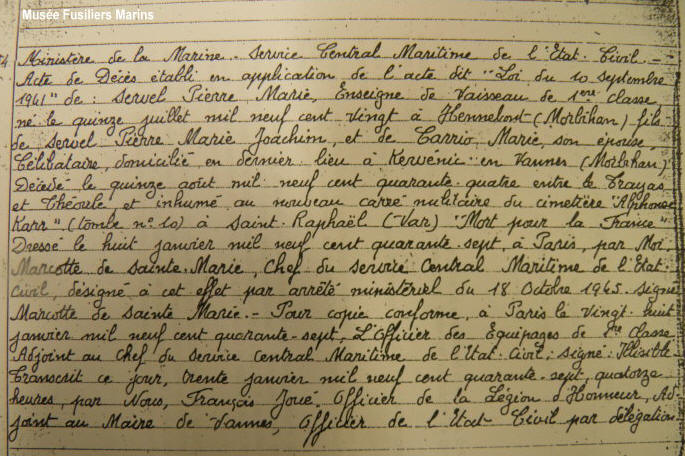 Musée Fusiliers Marins
Ministère de la Marine. Service Central Maritime de l'Etat. Civil. -
Acte de Décès établi en application de l'acte dit "Loi du 10 Septembre
1941" de: Servel Pierre, Marie, Enseigne de Vaisseau de 1ère classe,
né le quinze juillet mil neuf cent vingt à Hennebont (Morbihan) fils
de Servel Pierre Marie Joachim, et de Carrio Marie, son épouse,
Célibataire, domicilié en dernier lieu à Kervenic en Vannes (Morbihan)
Décédé le quinze août mil neuf cent quarante quatre entre le Trayas
et Théoule, et inhumé au nouveau carré militaire du cimetière "Alphonse
Karr" (tombe n° 10) à Saint. Raphaël (Var) "Mort pour la France"
Dressé le huit janvier mil neuf cent quarante. sept, à Paris, par Moi,
Marcotte de Sainte. Marie, Chef du Service Central Maritime de l'Etat.
Civil, désigné à cet effet par arrêté ministériel du 18 Octobre 1945. Signé
Marcotte de Sainte Marie. - Pour copie conforme, à Paris le Vingt. huit
janvier mil neuf cent quarante. sept, L'Officier des Equipages de 1ère Classe
Adjoint au Chef du Service Central Maritime de l'Etat. Civil; Signé: Illisible
Transcrit ce jour, trente janvier mil neuf cent quarante. sept, quatorze
heures, par Nous, François Joué, Officier de la Légion d'Honneur, Ad-
joint au Maire de Vannes, Officier de l'Etat. Civil par délégation